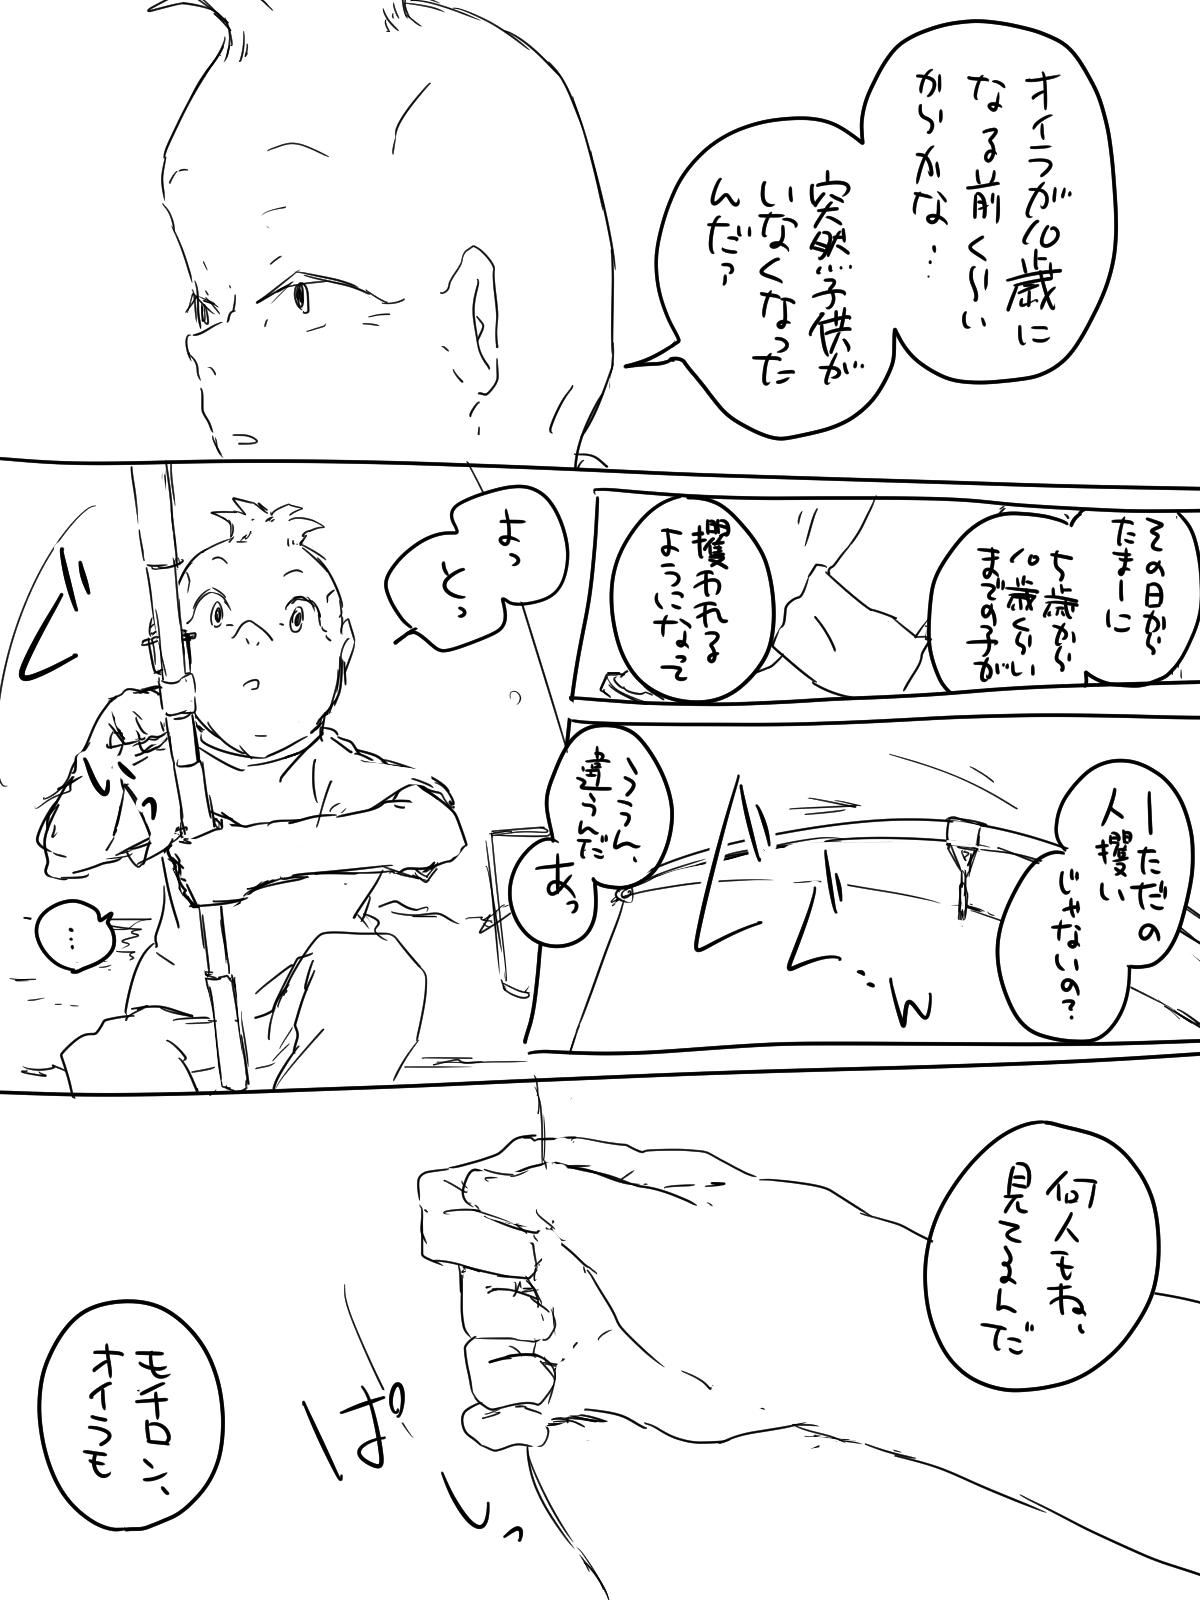 オイラが10歳に
なる前くらい
からかな…
突然子供が
いなくなった
んだァ
その日から
たまーに
5歳から
10歳くらい
までの子が
攫われる
ようになって
ーただの
人攫い
じゃないの？
ううん、
違うんだ
あっ
よっ
とっ
ビ
ぃ
っ
…
何人もね、
見てるんだ
ぱ
しっ
モチロン、
オイラモ